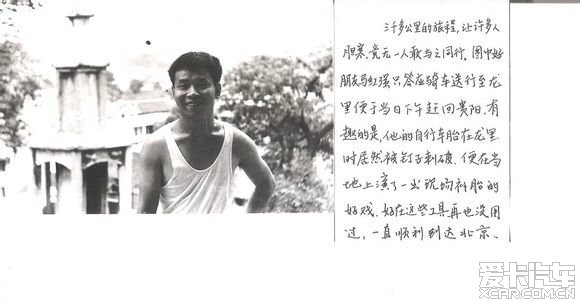 三千多公里的旅程，让许多人
胆寒，竟无一人敢与之同行。图中好
朋友马红强只答应骑车送行至龙
里便于当日下午赶回贵阳。有
趣的是，他的自行车胎在龙里
时居然被钉子刺破，便在当
地上演了一出现场补胎的
好戏。好在这些工具再也没用
过，一直顺利到达北京。
爱卡汽车
XCAR.COM.CN